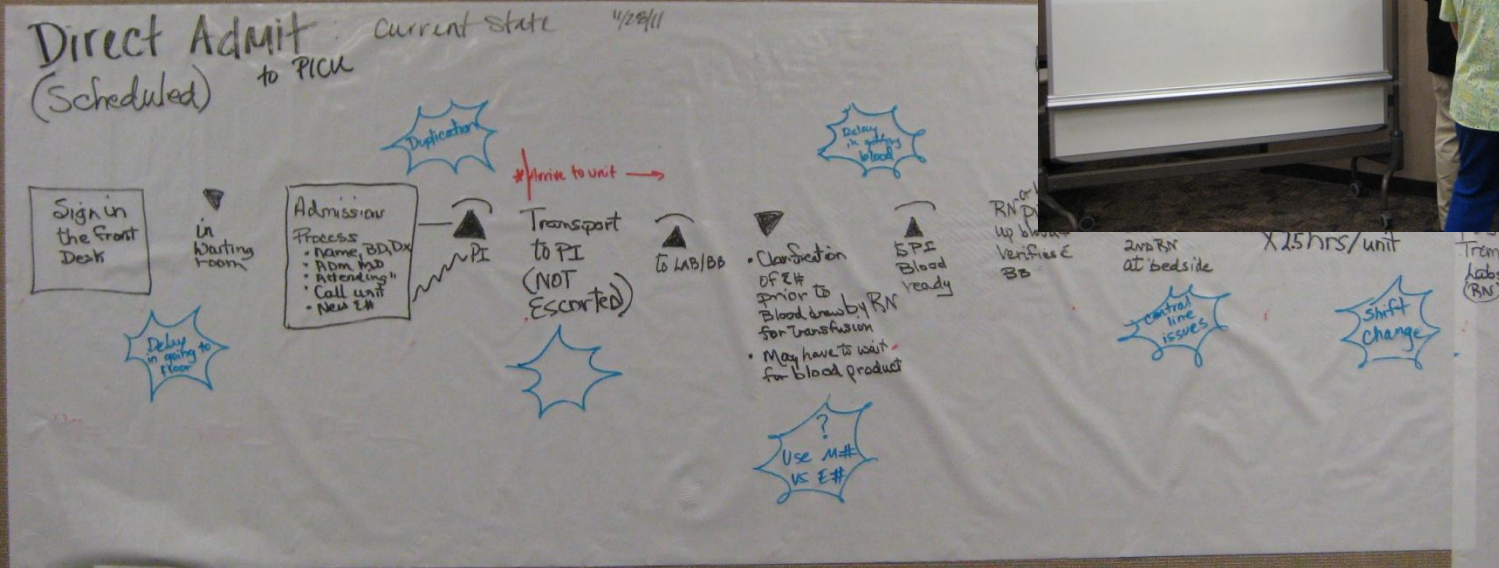 Direct Admit : Current State 4/28/11
to PICU
(Scheduled)
Duplication
Delay
in getting
blood
* Arrive to unit →
Sign in
the front
Desk
in
Waiting
room
Admission
Process
• Name, BD, Dx
• ADM MD
• Attending "
• Call unit
• New E#
PI
Transport
to PI
(NOT
Escorted)
to LAB/BB
• Clarification
of E#
prior to
Blood draw by RN
for transfusion
• May have to wait
for blood product
5PI
Blood
ready
RN
up blood
Verifies E
BB
2nd RN
at bedside
X 2.5 hrs/unit
Labs
(RN)
Delay
in going to
floor
Central
line
issues
Shift
change
?
Use M#
vs E#